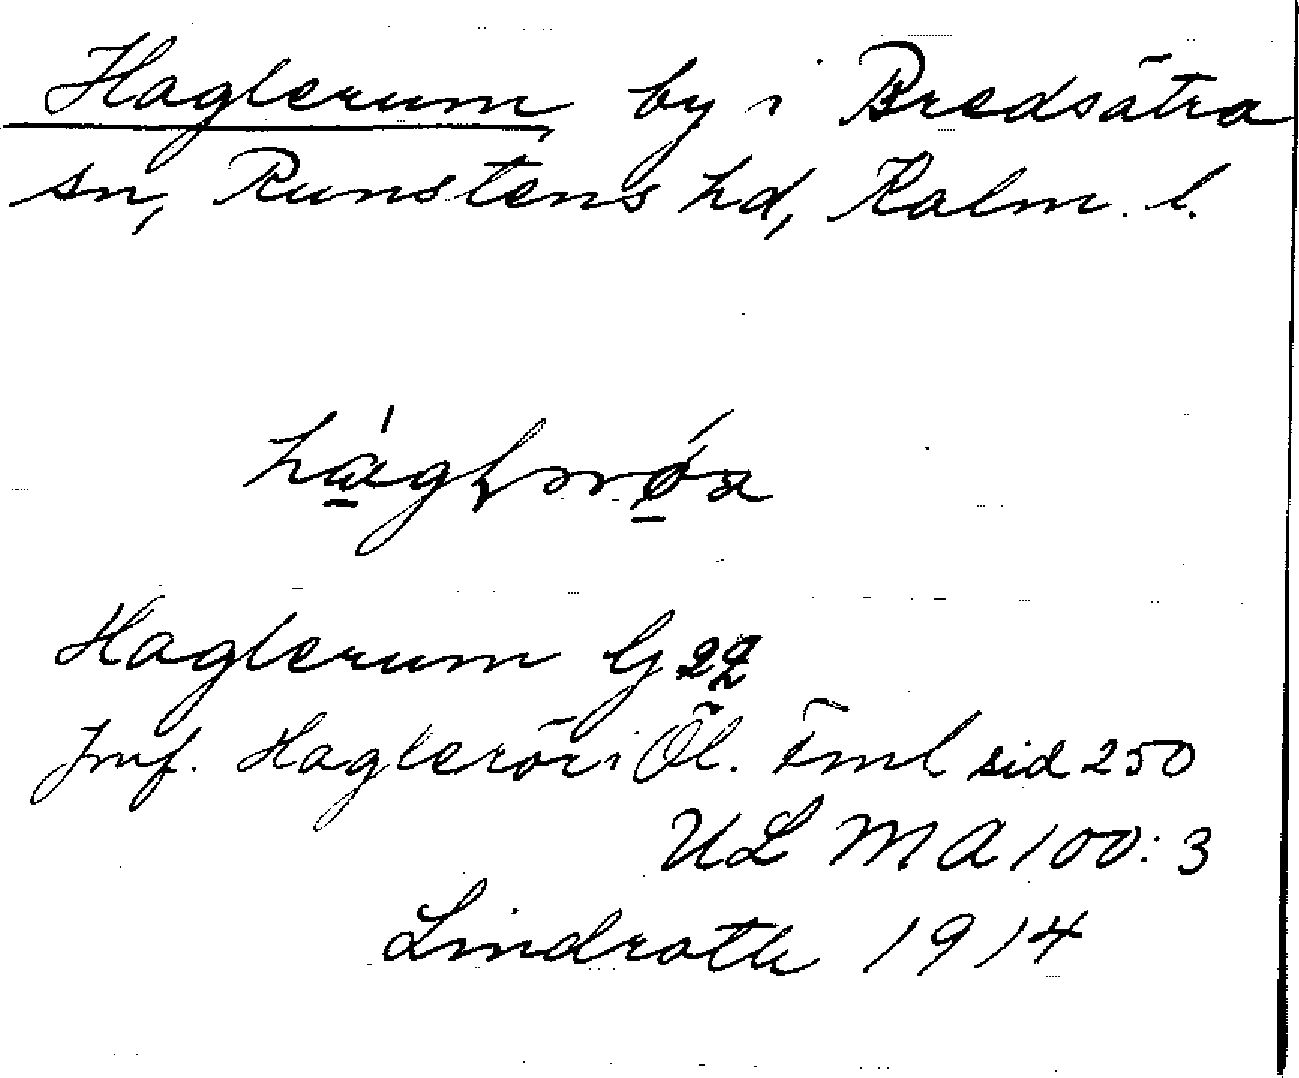 Haglerum by i Bredsätra
sn, Runstens hd, Kalm. l.
Haglerum G 22
Jmf. Hagleröri Öl. Fml sid 250
ULMA 100:3
Lindroth 1914